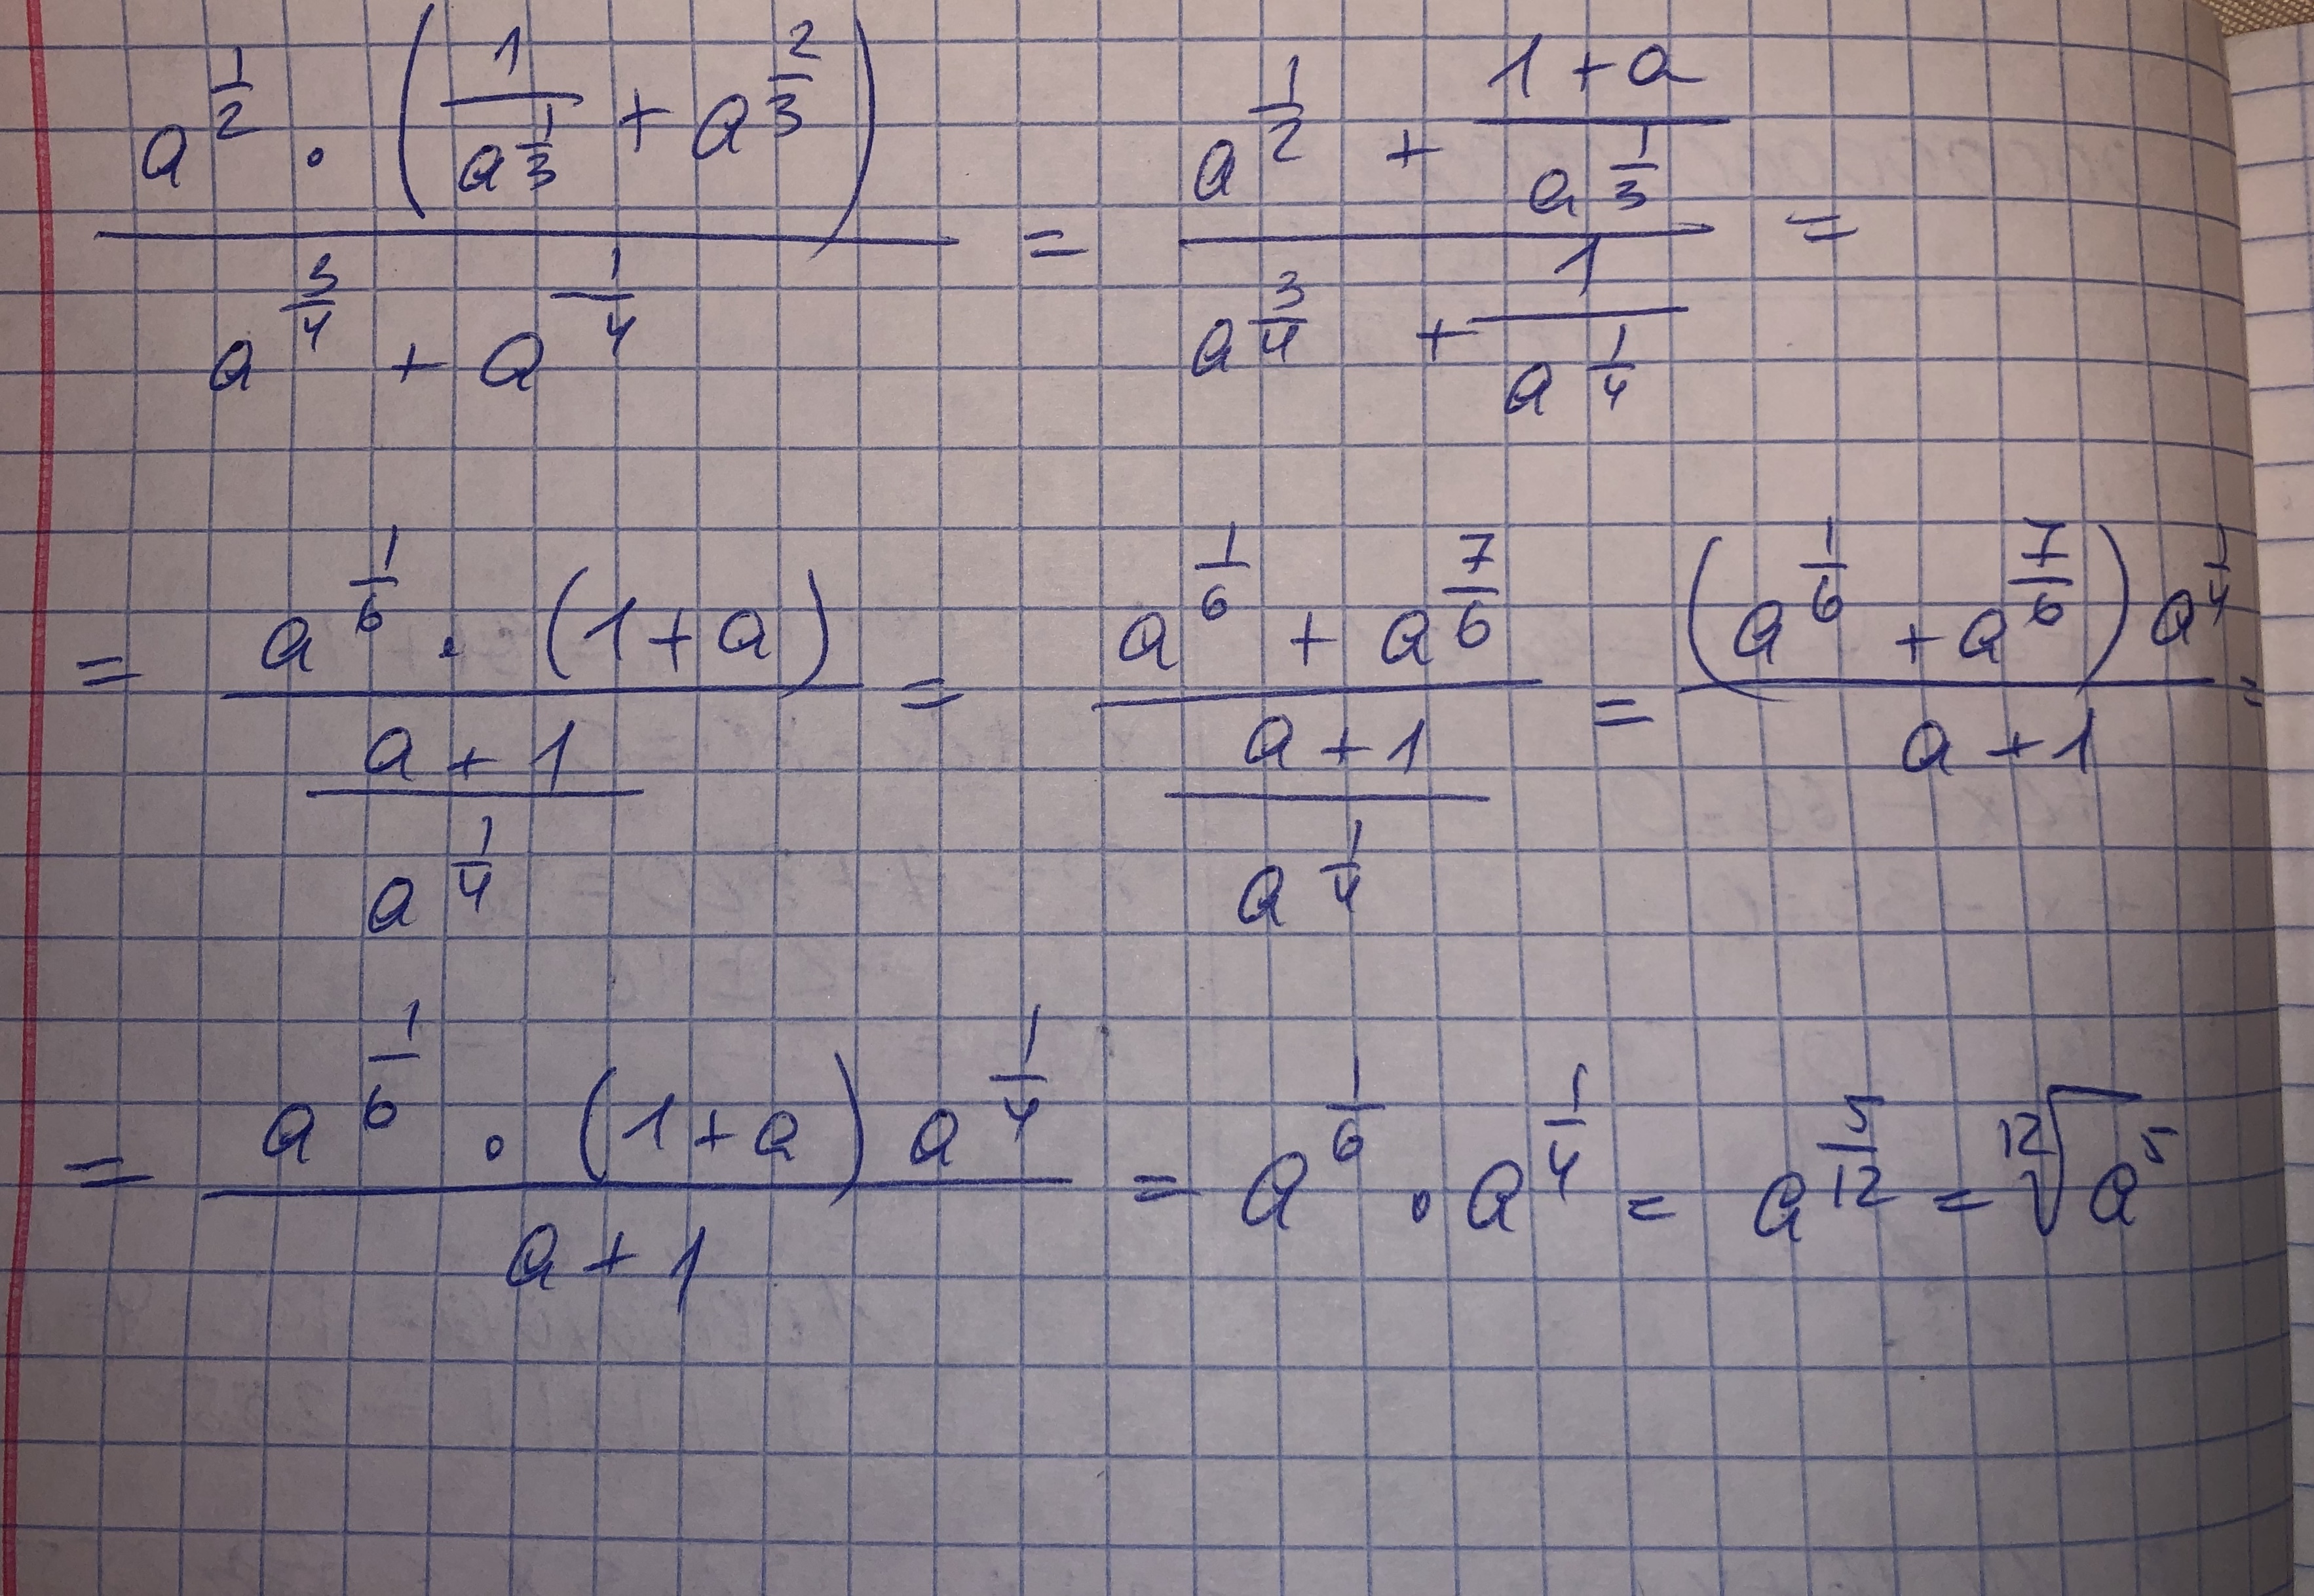 \frac{a^{\frac{1}{2}} \cdot \left( \frac{1}{a^{\frac{1}{3}}} + a^{\frac{2}{3}} \right)}{a^{\frac{3}{4}} + a^{-\frac{1}{4}}} = \frac{a^{\frac{1}{2}} + \frac{1+a}{a^{\frac{1}{3}}}}{a^{\frac{3}{4}} + \frac{1}{a^{\frac{1}{4}}}} =
= \frac{a^{\frac{1}{6}} \cdot (1+a)}{\frac{a+1}{a^{\frac{1}{4}}}} = \frac{a^{\frac{1}{6}} + a^{\frac{7}{6}}}{\frac{a+1}{a^{\frac{1}{4}}}} = \frac{\left( a^{\frac{1}{6}} + a^{\frac{7}{6}} \right) a^{\frac{1}{4}}}{a+1} =
= \frac{a^{\frac{1}{6}} \cdot (1+a) a^{\frac{1}{4}}}{a+1} = a^{\frac{1}{6}} \cdot a^{\frac{1}{4}} = a^{\frac{5}{12}} = \sqrt[12]{a^5}